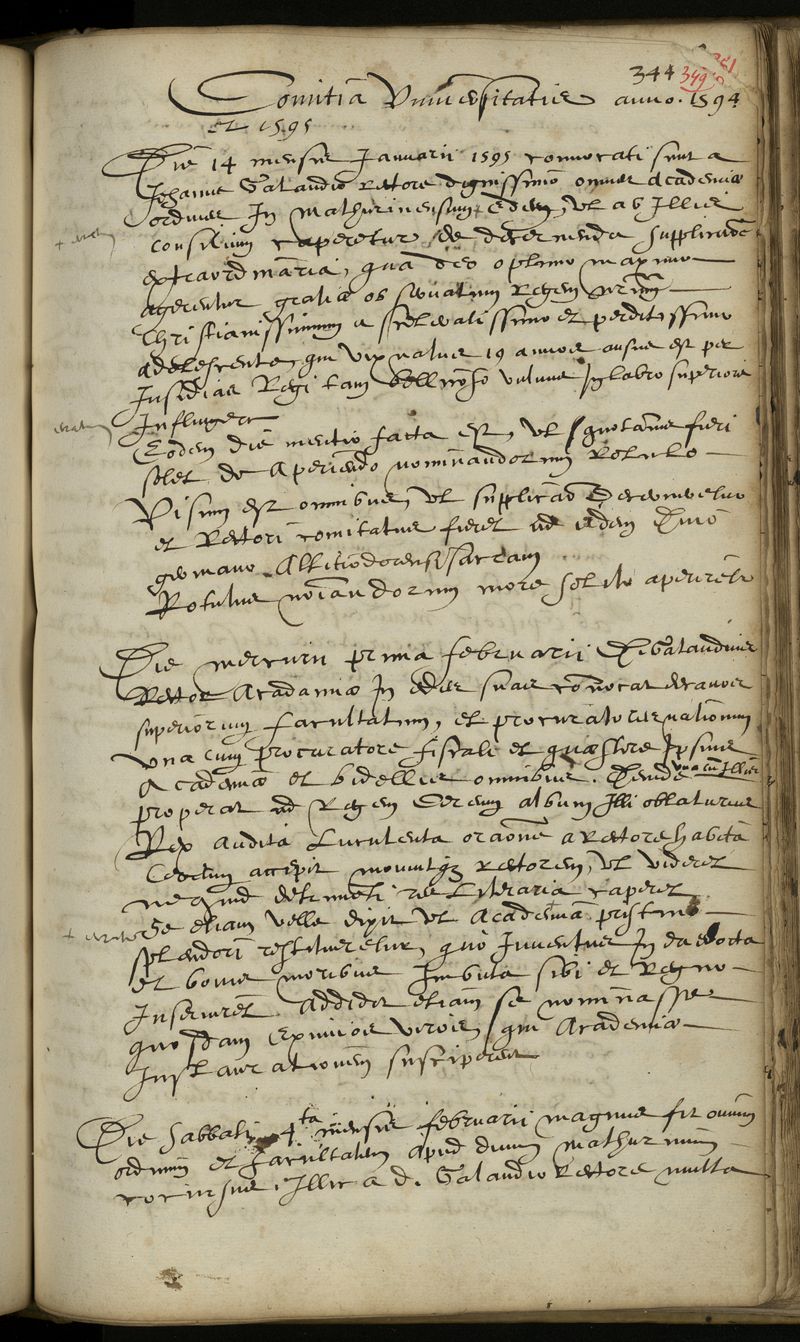 344 349 351
Comitia Universitatis anno. 1594
et 1595
Die 14 mensis Januarii 1595 convocati sunt a
Johanne Galandio Rectore dignissimo omnes Academiæ
ordines In Mathurinensium Edem, ut ab Illis
consilium caperetur de decernenda supplicatione
extraordinaria, qua deo optimo maximo
agerentur gratiæ ob servatum Regem nrum
Christianissimum a sceleratissimo et perditissimo
adolescente, qui vix natus 19 annos ausus est per
Insidias Regi tam bellicoso vulnus In labro superiore
Infligere
Eodem die mentio facta est, ut quotannis fieri
solet de Aperiendo nominandorum Rotulo
Visum est omnibus, ut supplicatio decerneretur
et Rectori comitatus fieret ad edem Divo
germano Altissiodorensi sacram
Rotulus noiandorum more solito aperiretur
Die mercurii prima februarii D. Galandius
Rector Academiæ In edes suas convocat decanos
superiorum facultatum, et procuratores nationum
una cum procuratore fiscali et quæstore Ipsius
Academiæ et bidellis omnibus. Deinde una cu Illis
properat ad Regem Cereum album Illi oblaturus
Rex audita Luculenta oraone a Rectore habita
Cereum accepit monuitq; rectorem, ut videret
nequid detrimenti res Literaria caperet
se etiam velle dixit ut Academia pristino
splendori restitueretur, quo Iuventus In ea docta
et bonis moribus Imbuta sibi et Regno
Inserviret. Addidit etiam se nominasse
quosdam eximios viros, qui Academiæ
Instaurationem susciperent
Die Sabbati 4ta mensis februarii magnus fit omnium
ordinum et facultatum apud divum mathurinum
concursus. Illic a d. Galandio Rectore multa